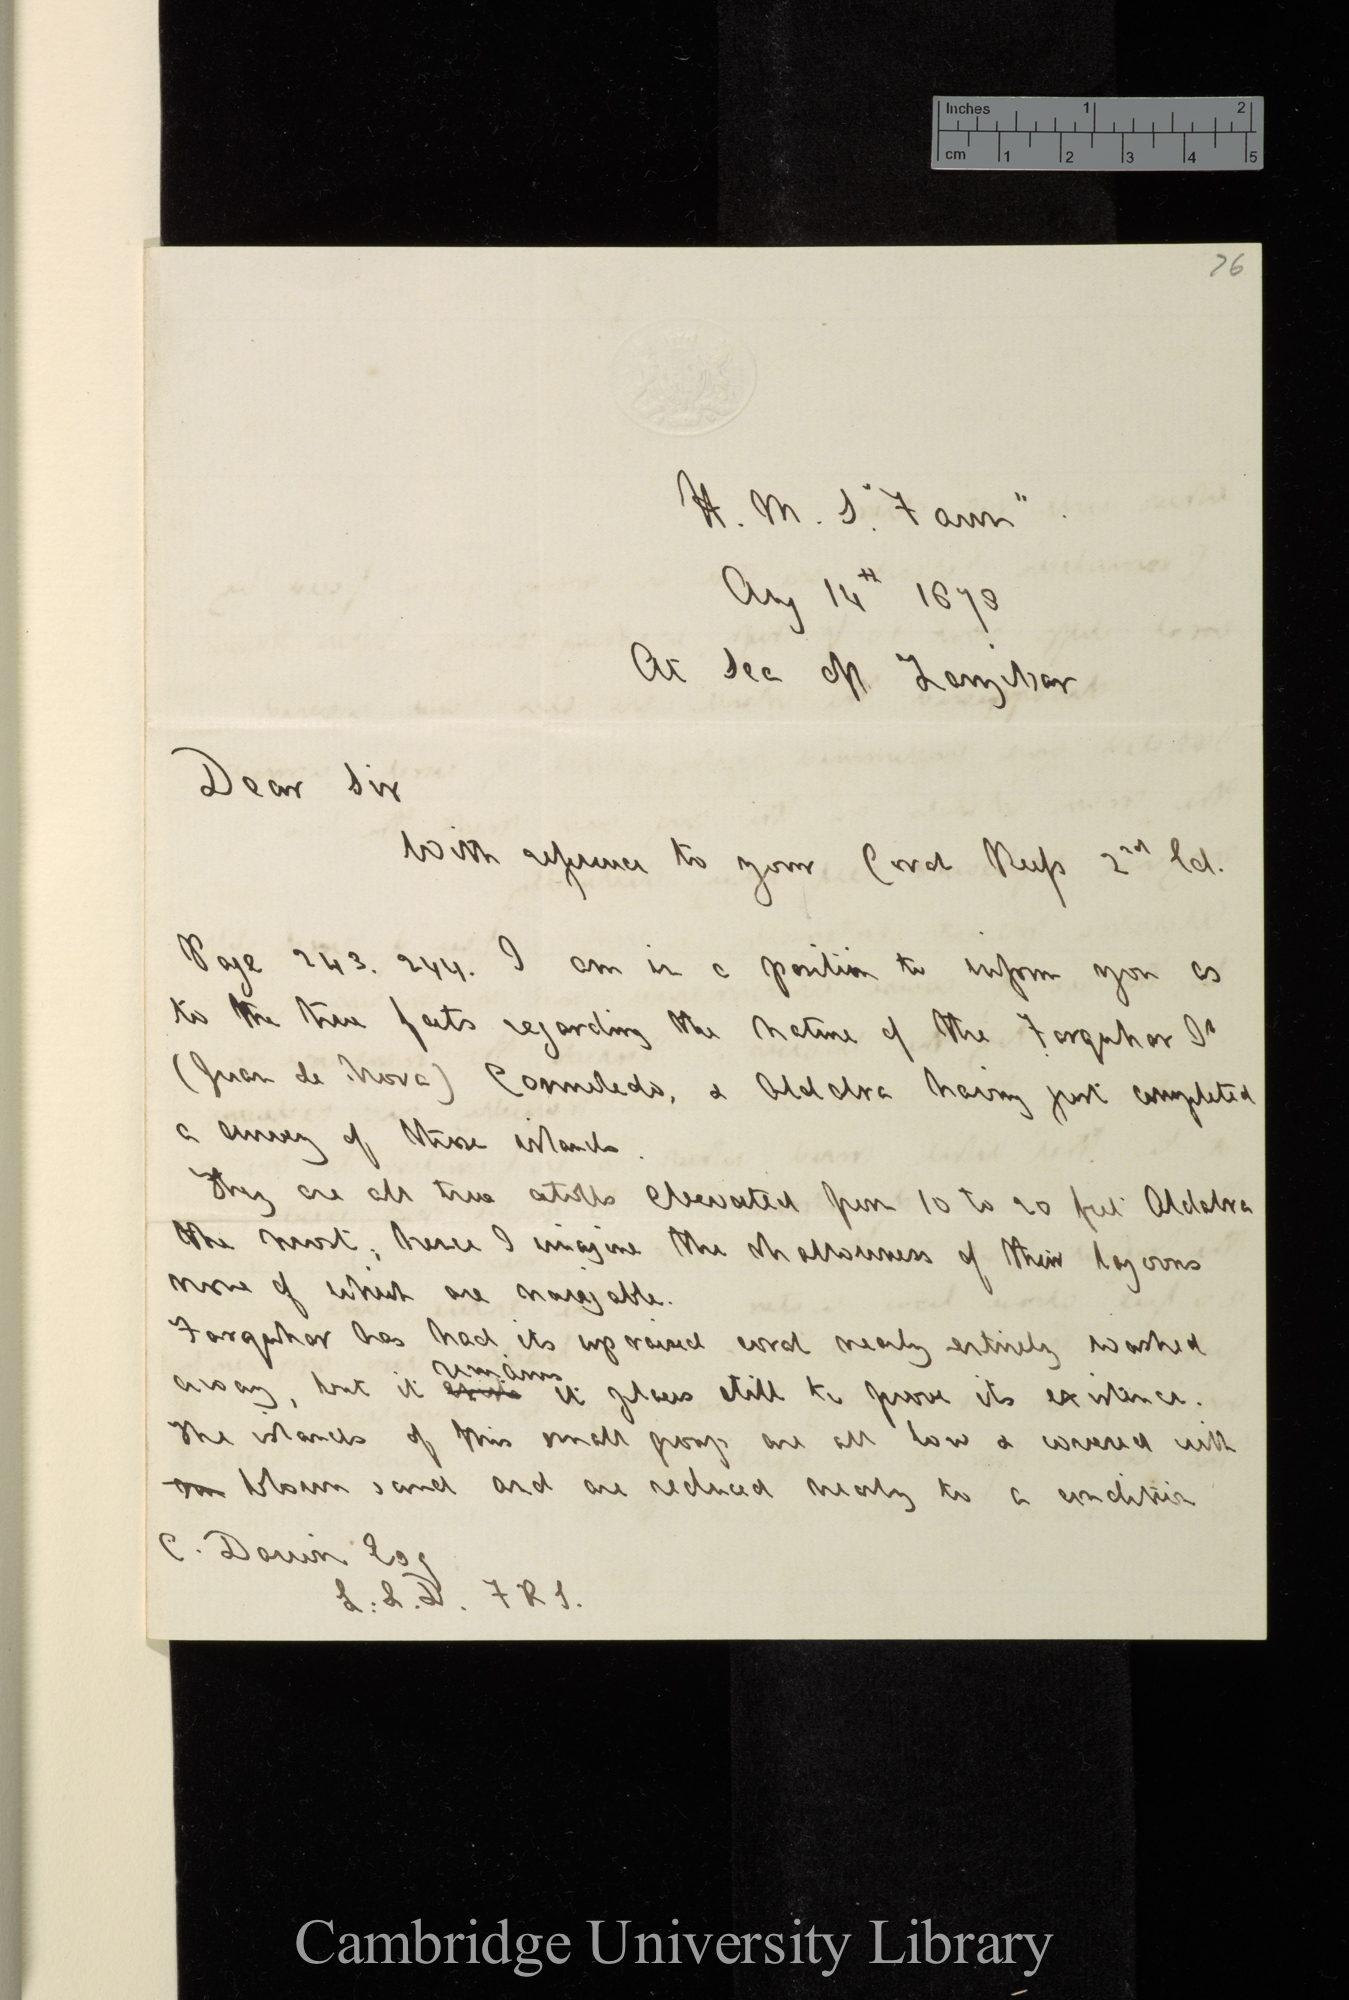 Inches 1 2
cm 1 2 3 4 5
76
H. M. S. "Fawn".
Aug 14th 1878
At Sea off Zanzibar
Dear Sir
With reference to your Coral Reefs 2nd Ed.
Page 243. 244. I am in a position to inform you as
to the true facts regarding the nature of the Farquhar Is
(Juan de Nova) Cosmoledo, & Aldabra having just completed
a survey of these islands.
They are all true atolls elevated from 10 to 20 feet Aldabra
the most; hence I imagine the shallowness of their lagoons
none of which are navigable.
Farquhar has had its upraised coral nearly entirely washed
away, but it remains in places still to prove its existence.
The islands of this small group are all low & covered with
blown sand and are reduced nearly to a condition
C. Darwin Esq
L.L.D. F R S.
Cambridge University Library